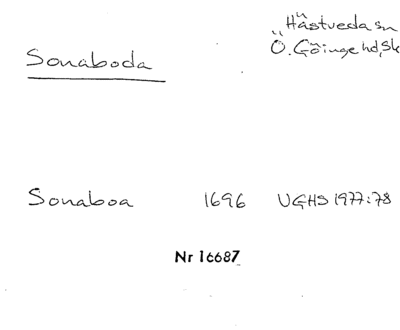 Hästveda sn
Ö. Göinge hd, Sk
Sonaboda
Sonaboa 1696 UGHS 1977:78
Nr 16687